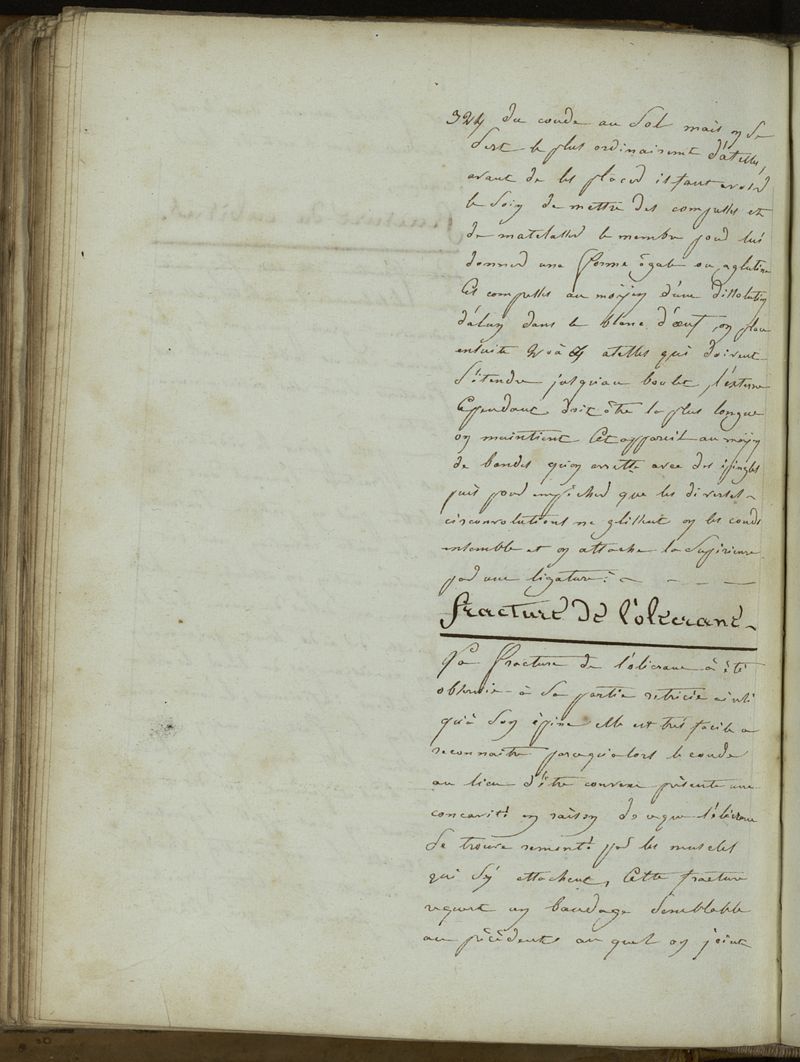 324 du coude au sol mais on se
sert le plus ordinairement d'atelles,
avant de les placer il faut avoir
le soin de mettre des compresses et
de matelasser le membre pour lui
donner une forme égale on aglutine
ces compresses au moyen d'une dissolution
d'alun dans le blanc d'œuf, on place
ensuite atelles qui doivent
s'étendre jusqu'au boulet, l'externe
cependant doit être la plus longue
on maintient cet appareil au moyen
de bandes qu'on arrette avec des épingles
puis pour empêcher que les diverses
circonvolutions ne glissent on les coud
ensemble et on attache la supérieure
par une ligature.
fracture de l'olécrane
La fracture de l'olécrane a été
observée à sa partie retricie ainsi
qu'à son épine elle est très facile a
reconnaitre parcequ'alors le coude
au lieu d'être convexe présente une
concavité en raison de ce que l'olécrane
se trouve remonté par les muscles
qui s'y attachent, Cette fracture
requert un bandage semblable
au précédent auquel on joint